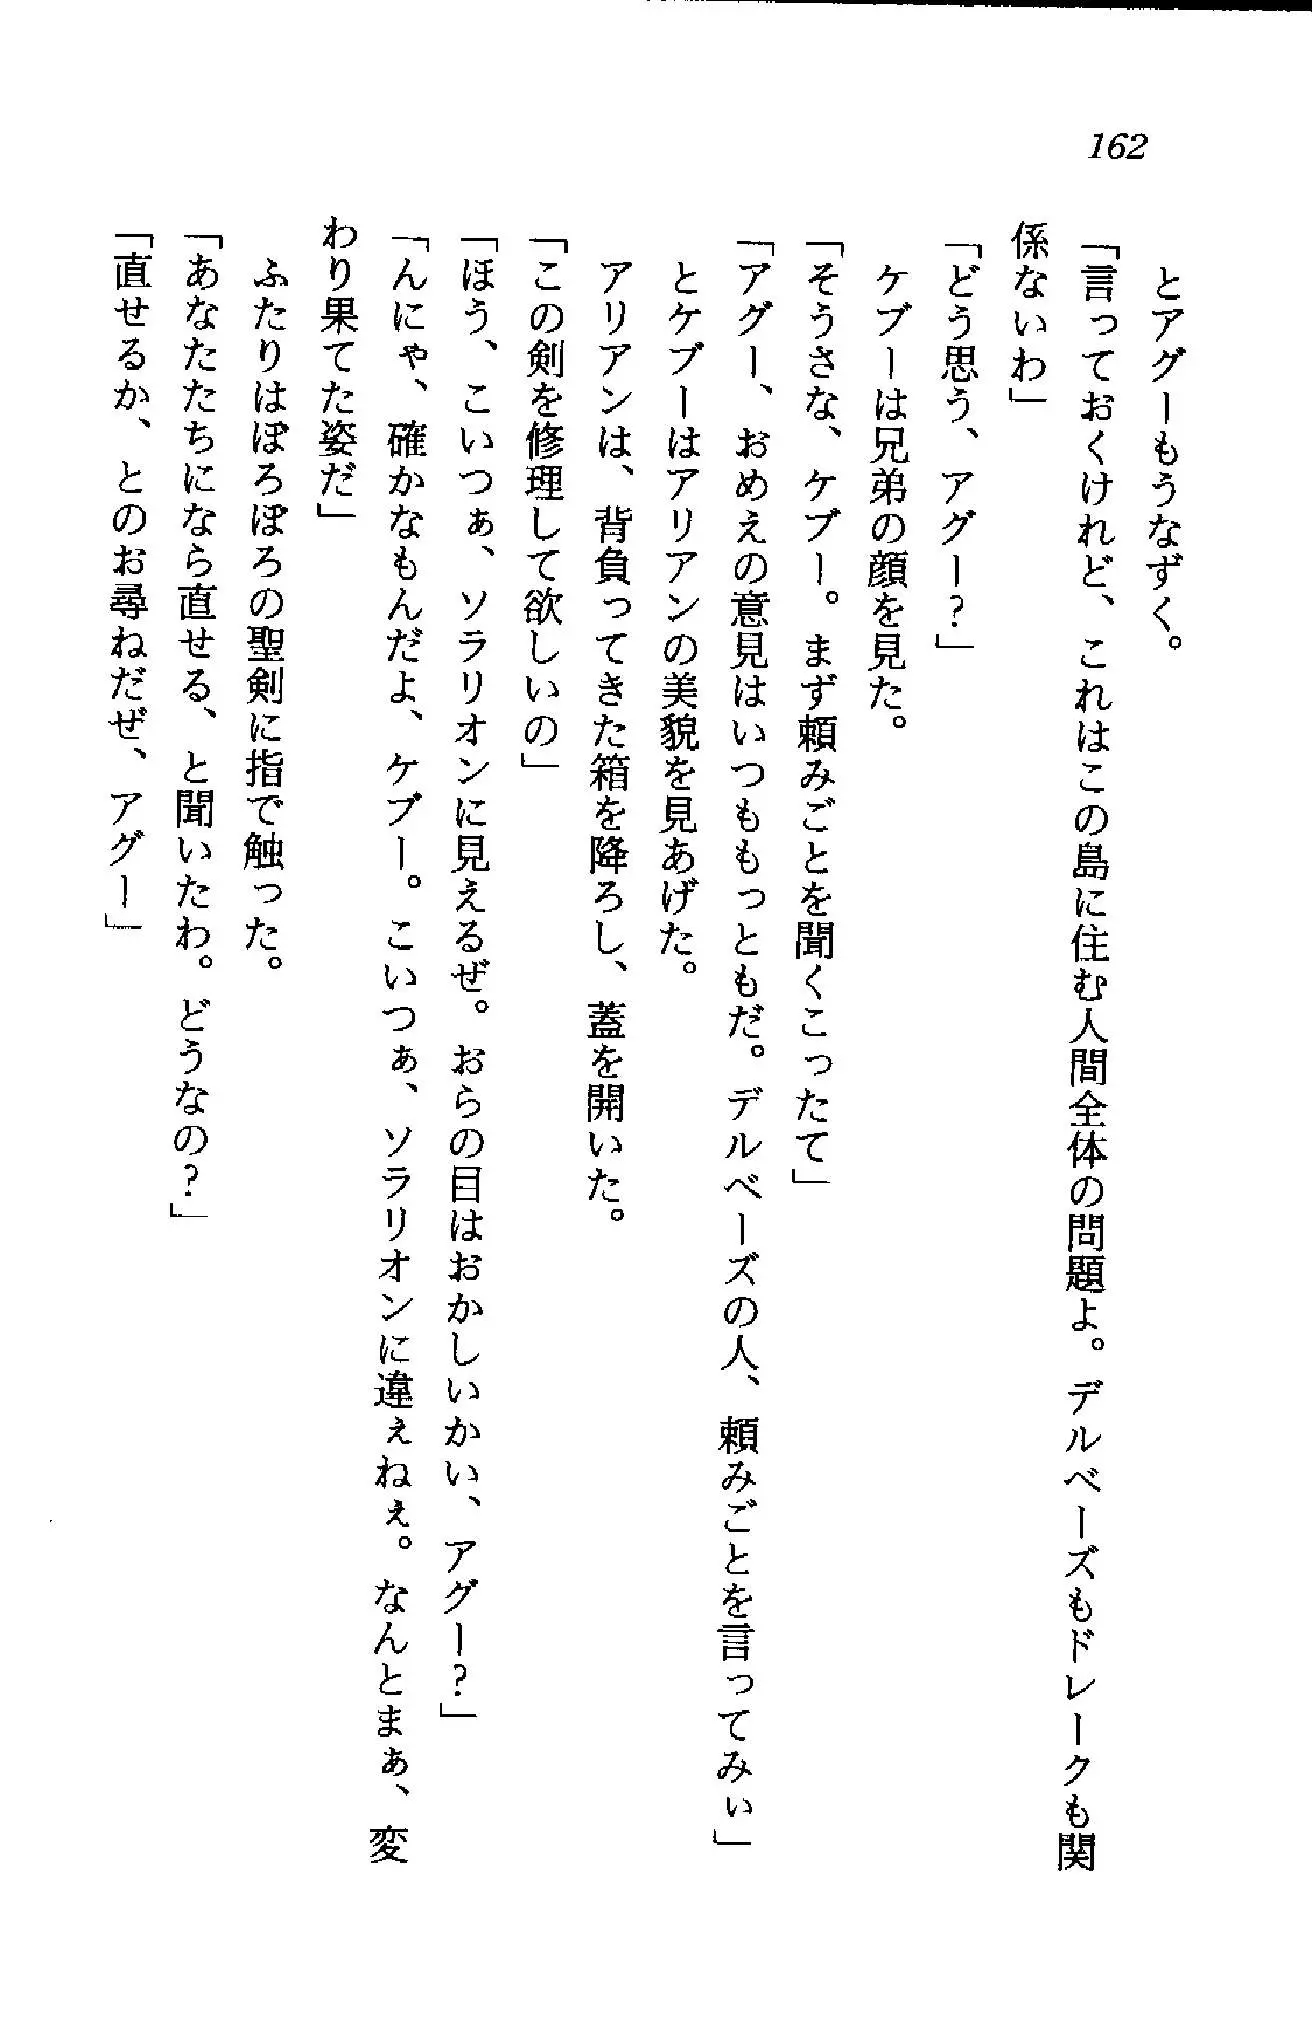 162
とアグーもうなずく。
「言っておくけれど、これはこの島に住む人間全体の問題よ。デルベーズもドレークも関
係ないわ」
「どう思う、アグー?」
ケブーは兄弟の顔を見た。
「そうさな、ケブー。まず頼みごとを聞くこったて」
「アグー、おめえの意見はいつももっともだ。デルベーズの人、頼みごとを言ってみぃ」
とケブーはアリアンの美貌を見あげた。
アリアンは、背負ってきた箱を降ろし、蓋を開いた。
「この剣を修理して欲しいの」
「ほう、こいつぁ、ソラリオンに見えるぜ。おらの目はおかしいかい、アグー?」
「んにゃ、確かなもんだよ、ケブー。こいつぁ、ソラリオンに違ぇねぇ。なんとまぁ、変
わり果てた姿だ」
ふたりはぼろぼろの聖剣に指で触った。
「あなたたちになら直せる、と聞いたわ。どうなの?」
「直せるか、とのお尋ねだぜ、アグー」